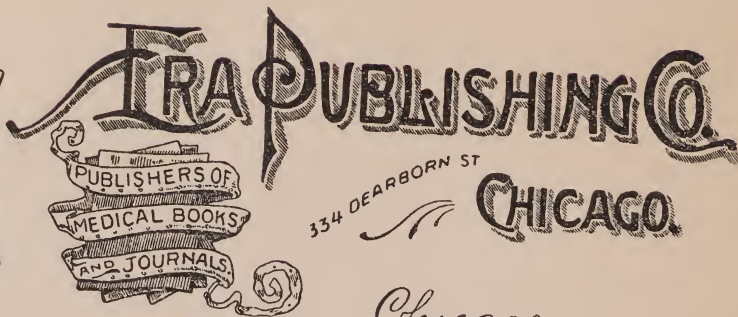 ERA PUBLISHING CO.
PUBLISHERS OF
MEDICAL BOOKS
AND JOURNALS.
334 DEARBORN ST
CHICAGO.
Chicago